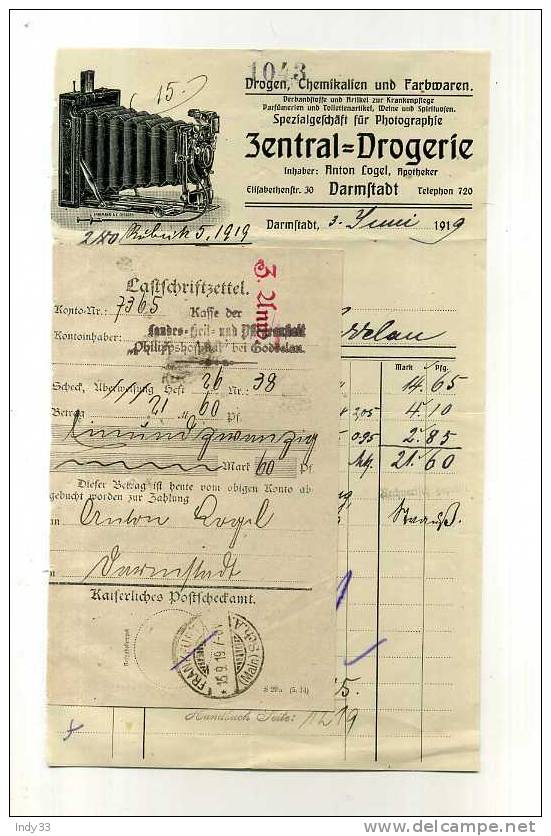 1043
Drogen, Chemikalien und Farbwaren.
15.
Verbandstoffe und Artikel zur Krankenpflege
Parfümerien und Toilettenartikel, Weine und Spirituosen.
Spezialgeschäft für Photographie
Zentral=Drogerie
Inhaber: Anton Logel, Apotheker
Elisabethenstr. 30 Darmstadt Telephon 720
Darmstadt, 3. Juni 1919
280 Rubrik 5, 1919
Lastschriftzettel.
3. Juni
Konto-Nr.: 7365
Kasse der
Kontoinhaber: Landes-Heil- und Pflegeanstalt
"Philippshospital" bei Goddelau.
Scheck, Überweisung Heft 26 Nr.: 38
Betrag 21 M 60 Pf.
Einundzwanzig
Mark 60 Pf
Dieser Betrag ist heute vom obigen Konto ab
gebucht worden zur Zahlung
an Anton Logel
in Darmstadt
Kaiserliches Postscheckamt.
FRANKFURT (Main) Sch.A.
* 15.9.19.7-8
ddelau
Mark Pfg.
14.65
2,05 4.10
0.95 2.85
Mk. 21.60
Strauß.
Handbuch Seite: 1219
Indy33
www.delcampe.net